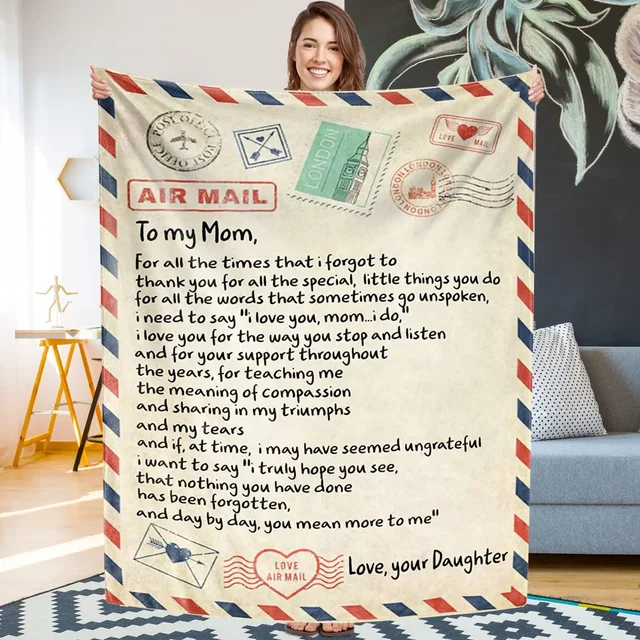 POST OFFICE POST OFFICE
LONDON
LOVE MAIL
LONDON LONDON LONDON
AIR MAIL
To my Mom,
For all the times that i forgot to
thank you for all the special, little things you do
for all the words that sometimes go unspoken,
i need to say "i love you, mom...i do,"
i love you for the way you stop and listen
and for your support throughout
the years, for teaching me
the meaning of compassion
and sharing in my triumphs
and my tears
and if, at time, i may have seemed ungrateful
i want to say "i truly hope you see,
that nothing you have done
has been forgotten,
and day by day, you mean more to me"
Love, your Daughter
LOVE
AIR MAIL